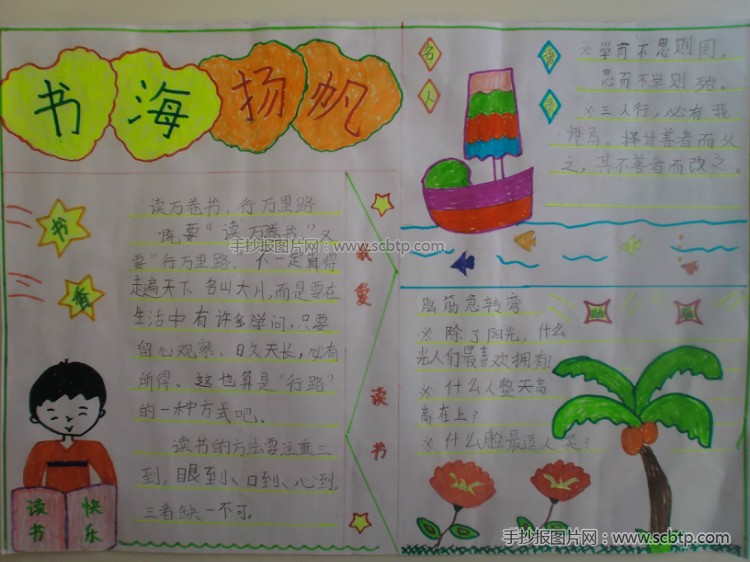 书海扬帆
名人
语言
※学而不思则罔,
思而不学则殆。
※三人行,必有我
师焉。择其善者而从
之,其不善者而改之。
书
香
读万卷书,行万里路
既要“读万卷书”又
要“行万里路”,不一定真得
走遍天下名山大川,而是要在
生活中有许多学问,只要
留心观察,日久天长,必有
所得。这也算是“行路”
的一种方式吧。
读书的方法要注重三
到,眼到、口到、心到,
三者缺一不可。
我爱读书
读书
快乐
脑筋急转弯
※除了阳光,什么
光人们最喜欢拥有?
※什么人整天高
高在上?
※什么脸最逗人笑?
手抄报图片网:www.scbtp.com
手抄报图片网:www.scbtp.com